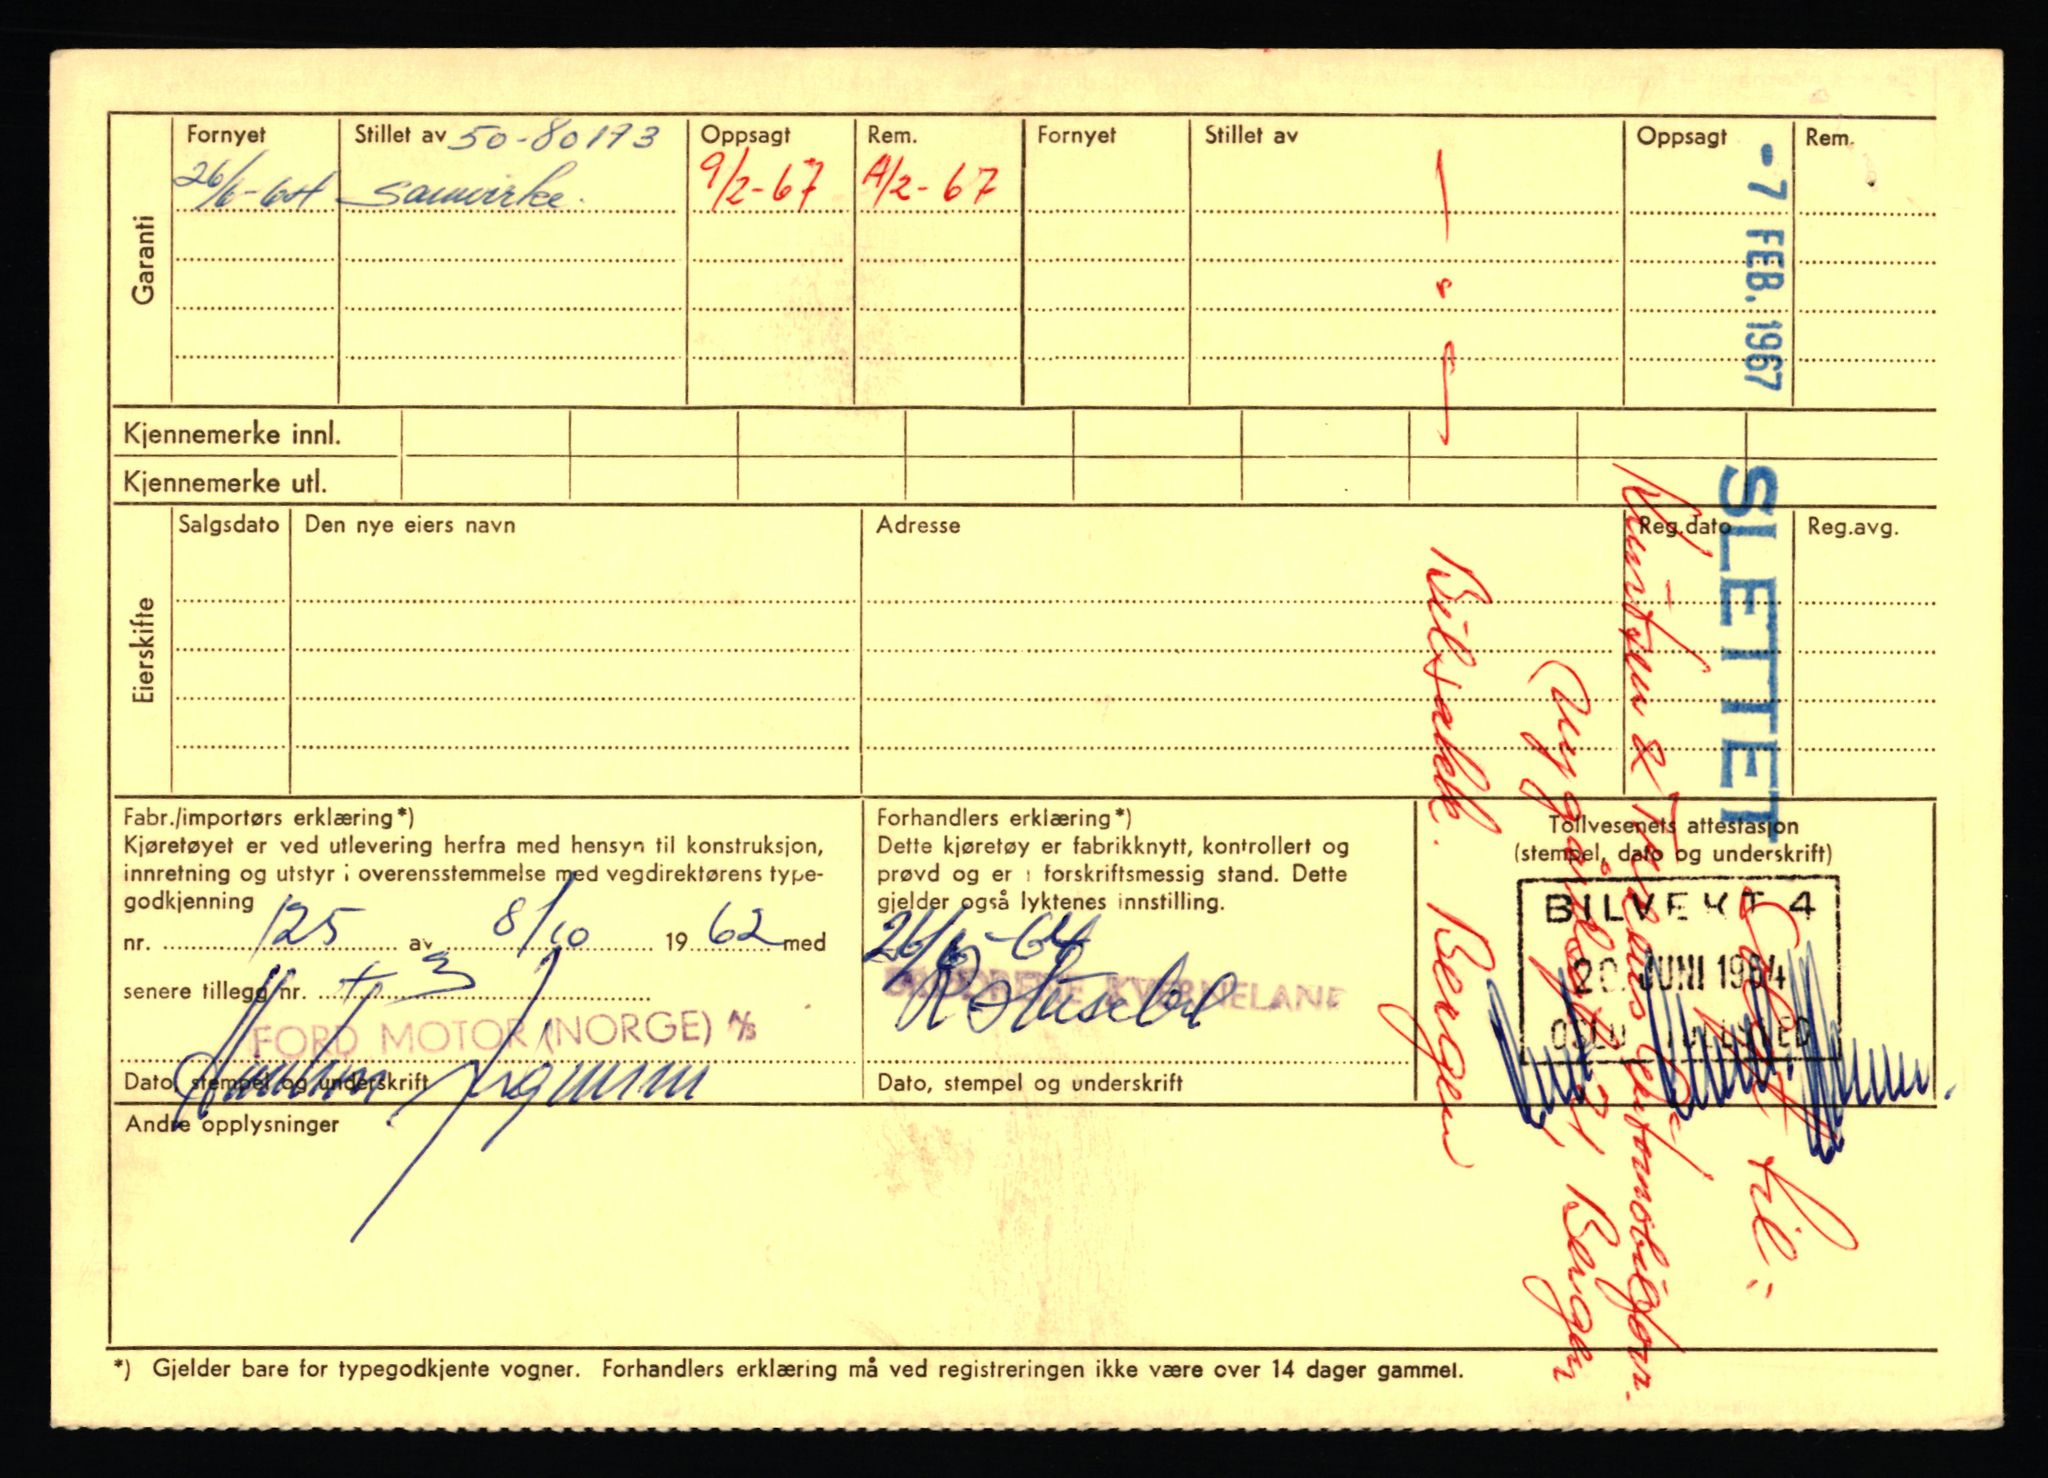 Garanti
Fornyet Stillet av 50-80173 Oppsagt Rem. Fornyet Stillet av Oppsagt Rem.
26/6-64 Samvirke. 9/2-67 A/2-67
- 7 FEB. 1967
Kjennemerke innl.
Kjennemerke utl.
SLETTET
Eierskifte
Salgsdato Den nye eiers navn Adresse Reg.dato Reg.avg.
Solgt til:
Knutsen & automobilforr.
Nygårdsgt. 31, Bergen
Bilsakk. Bergen
Fabr./importørs erklæring*)
Kjøretøyet er ved utlevering herfra med hensyn til konstruksjon,
innretning og utstyr i overensstemmelse med vegdirektørens type-
godkjenning
nr. 125 av 8/10 1962 med
senere tillegg nr. + 3
FORD MOTOR (NORGE) A/S
Dato, stempel og underskrift
Forhandlers erklæring*)
Dette kjøretøy er fabrikknytt, kontrollert og
prøvd og er i forskriftsmessig stand. Dette
gjelder også lyktenes innstilling.
26/6-64
BRØDRENE KVERNELAND
Dato, stempel og underskrift
Tollvesenets attestasjon
(stempel, dato og underskrift)
BILVEKT 4
20. JUNI 1964
OSLO TOLLSTED
Andre opplysninger
*) Gjelder bare for typegodkjente vogner. Forhandlers erklæring må ved registreringen ikke være over 14 dager gammel.